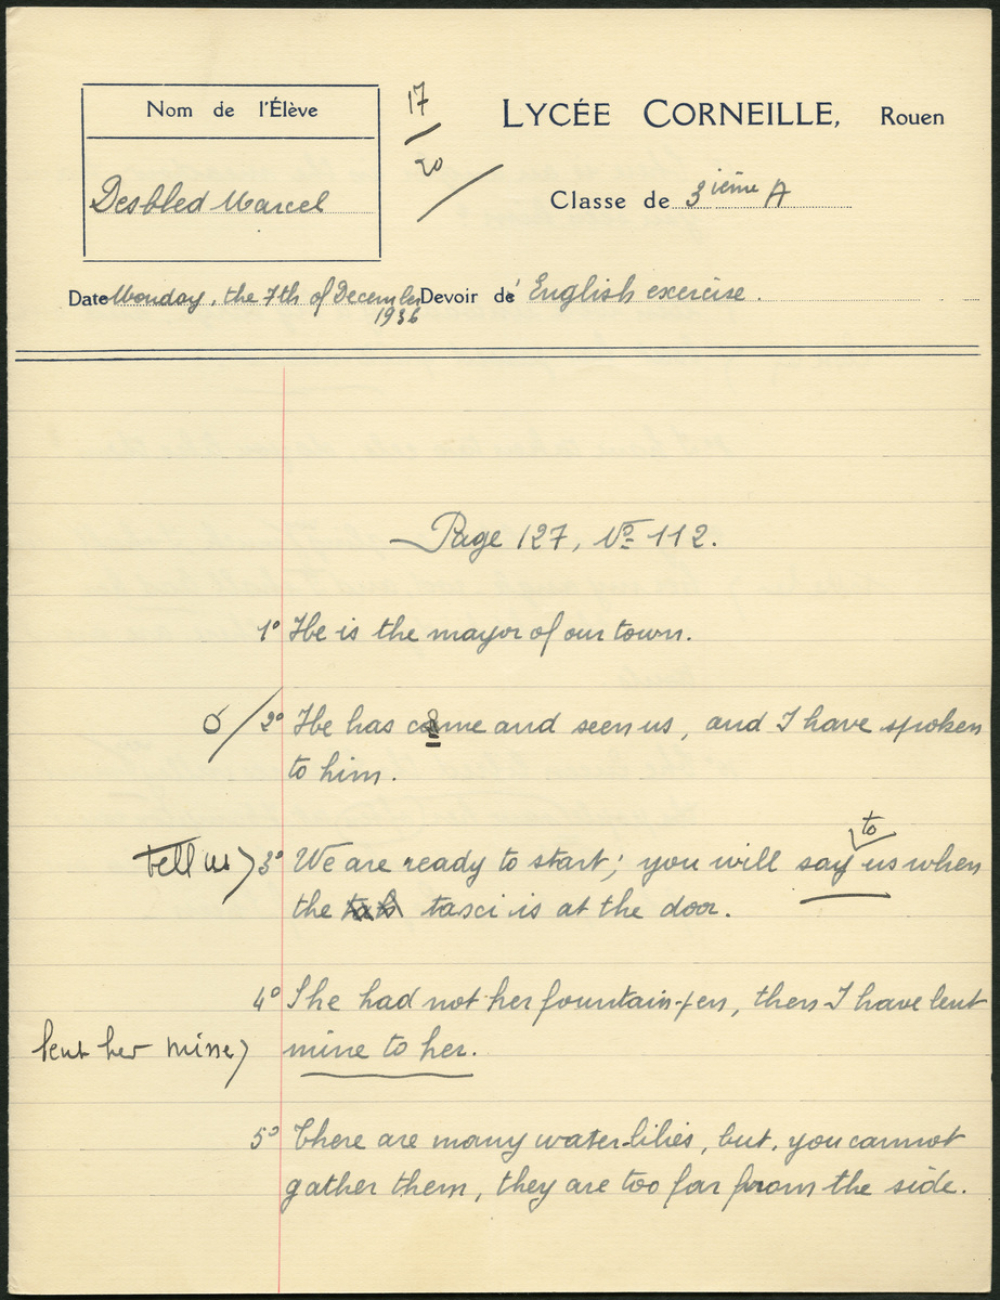 Nom de l'Élève
17
20
LYCÉE CORNEILLE, Rouen
Desbled Marcel
Classe de 3ième A
Date Monday, the 7th of December
1936
Devoir de English exercise.
Page 127, Nº 112.
1º He is the mayor of our town.
2º He has come and seen us, and I have spoken
to him.
to
tell us 3º We are ready to start; you will say us when
the tasci is at the door.
4º She had not her fountain-pen, then I have lent
lent her mine) mine to her.
5º There are many water-lilies, but, you cannot
gather them, they are too far from the side.